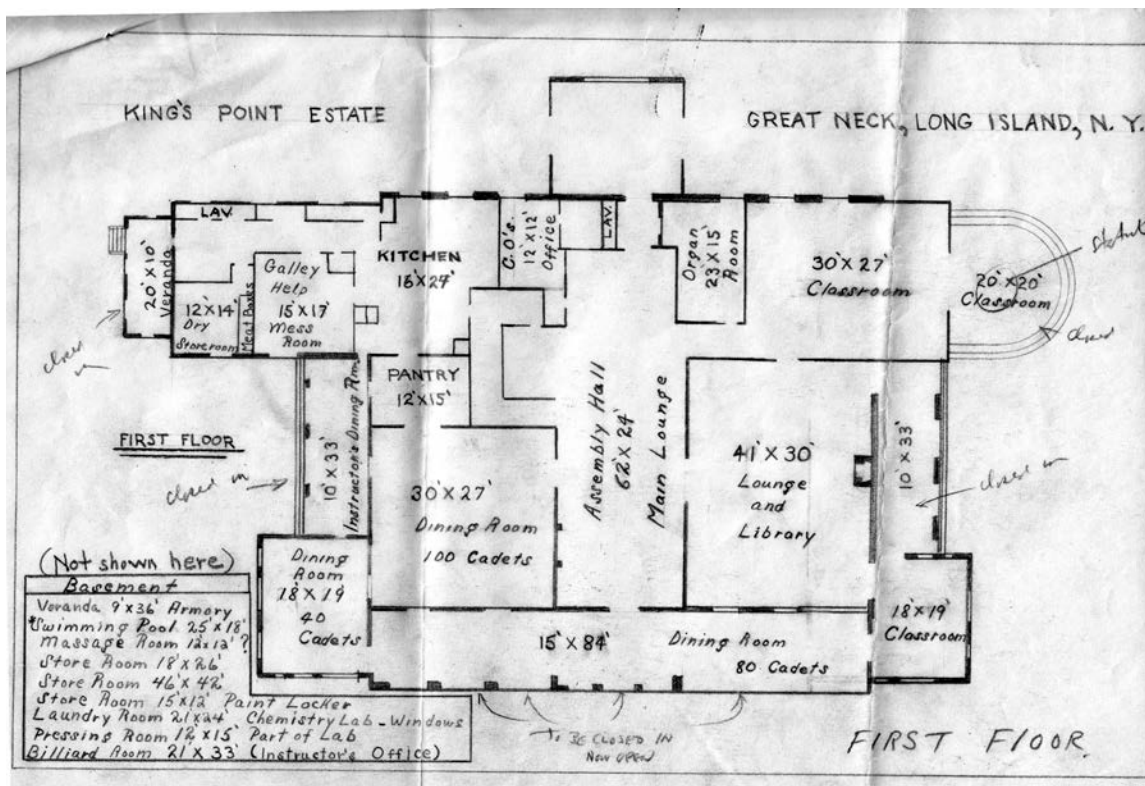 KING'S POINT ESTATE
GREAT NECK, LONG ISLAND, N. Y.
LAV.
20' X 10'
Veranda
12' X 14'
Dry
Storeroom
Meat Boxes
Galley
Help
15' X 17'
Mess
Room
KITCHEN
16' X 24'
C.O's.
12' X 12'
Office
LAV.
Organ
23' X 15'
Room
30' X 27'
Classroom
20' X 20'
Classroom
closed
closed
in
PANTRY
12' X 15'
FIRST FLOOR
closed in
10' X 33'
Instructor's Dining Rm.
30' X 27'
Dining Room
100 Cadets
Assembly Hall
62' X 24'
Main Lounge
41' X 30'
Lounge
and
Library
10' X 33'
closed in
Dining
Room
18' X 19'
40
Cadets
15' X 84'
Dining Room
80 Cadets
18' X 19'
Classroom
To BE CLOSED IN
NOW OPEN
FIRST FLOOR
(Not shown here)
Basement
Veranda 9'X36' Armory
*Swimming Pool 25'X18'
Massage Room 12x12'?
Store Room 18'X26'
Store Room 46'X42'
Store Room 15'X12' Paint Locker
Laundry Room 21'X24' Chemistry Lab-Windows
Pressing Room 12'X15' Part of Lab
Billiard Room 21'X33' (Instructor's Office)